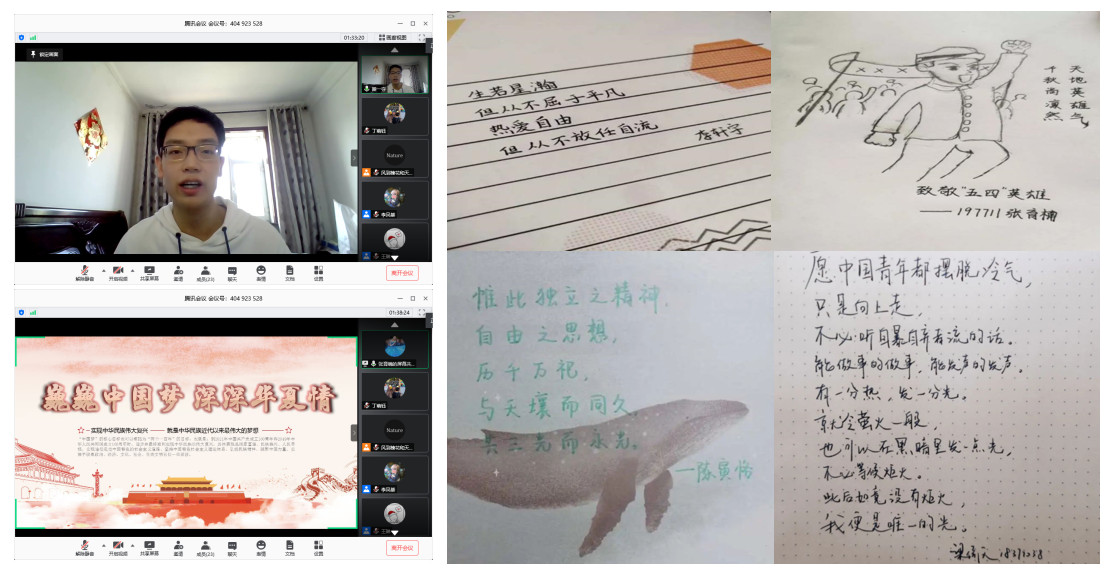 腾讯会议 会议号: 404 923 528
01:33:20
Nature
李凤雄
解除静音
开启视频
共享屏幕
邀请
成员(23)
聊天
表情
文档
设置
离开会议
腾讯会议 会议号: 404 923 528
01:38:24
巍巍中国梦 深深华夏情
实现中华民族伟大复兴 —— 就是中华民族近代以来最伟大的梦想
Nature
李凤雄
解除静音
开启视频
共享屏幕
邀请
成员(23)
聊天
表情
文档
设置
离开会议
生若星瀚
但从不屈于平凡
热爱自由
但从不放任自流
李轩宇
天地英雄气
千秋尚凛然
致敬“五四”英雄
——197711 张首楠
惟此独立之精神,
自由之思想,
历千万祀,
与天壤而同久,
共三光而永光。
—陈寅恪
愿中国青年都摆脱冷气,
只是向上走,
不必听自暴自弃者流的话。
能做事的做事,能发声的发声。
有一分热,发一分光。
就令萤火一般,
也可以在黑暗里发一点光,
不必等候炬火。
此后如竟没有炬火,
我便是唯一的光。